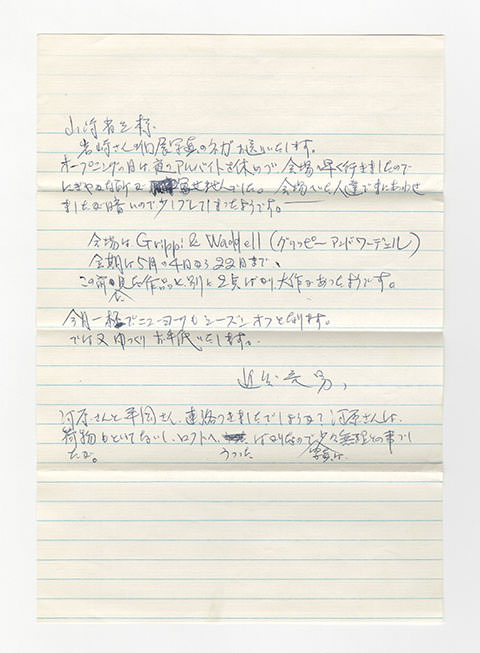 山崎省三様
岩崎さんの個展写真のネガお送りいたします。
オープニングの日は夜のアルバイトを休んで会場へ早く行きましたので
にぎやかな所が写せませんでした。会場にいた人達でまにあわせ
ましたが暗いので少しブレてしまったようです。
会場は Grippi & Waddell (グリッピー アンド ワーデェル)
会期は5月の4日から22日まで、
この前見た作品と別に2点ばかり大作があったようです。
今月一杯でニューヨークもシーズンオフとなります。
では又ゆっくりお手紙いたします。
近藤竜男、
河原さんと平岡さん、連絡つきましたでしょうか 河原さんは、
荷物もといてないし、ロフトへ、うつったばかりなので写真は少々無理との事でし
たが。